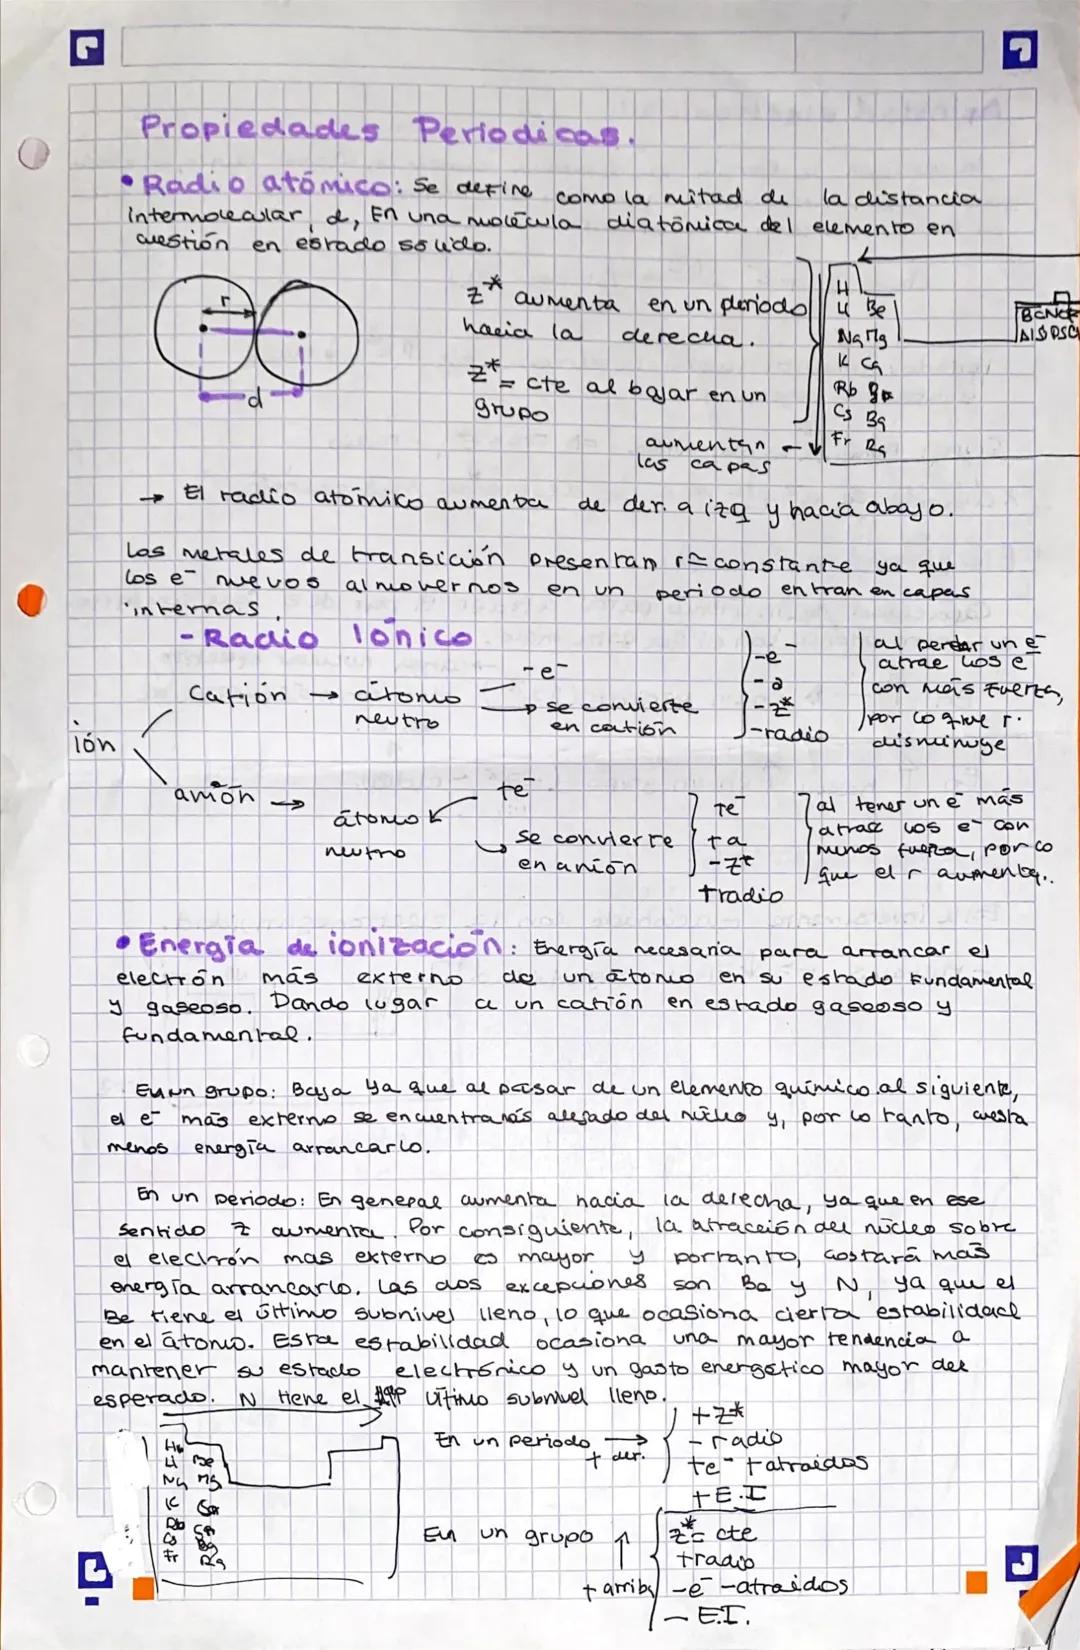 Propiedades Periodicas.
• Radio atómico: Se define como la mitad de la distancia
intermolecular, d, En una molécula diatómica del elemento en
cuestión en estado sólido.
r
d
z* aumenta en un periodo
hacia la derecha.
z* = cte al bajar en un
grupo
aumentan
las capas
H
Li Be
Na Mg
K Ca
Rb
Cs Ba
Fr Ra
→ El radio atómico aumenta de der. a izq y hacia abajo.
Los metales de transición presentan r ≃ constante ya que
los e⁻ nuevos al movernos en un periodo entran en capas
internas.
- Radio Iónico
ión
Catión → átomo
neutro
- e⁻
se convierte
en catión
-e⁻
-a
-z*
-radio
al perder un e⁻
atrae los e⁻
con más fuerza,
por lo que r.
disminuye
anión →
átomo
neutro
+e⁻
se convierte
en anión
+e⁻
+a
-z*
+radio
al tener un e⁻ más
atrae los e⁻ con
menos fuerza, por lo
que el r aumenta..
• Energía de ionización: Energía necesaria para arrancar el
electrón más externo de un átomo en su estado Fundamental
y gaseoso. Dando lugar a un catión en estado gaseoso y
fundamental.
En un grupo: Baja ya que al pasar de un elemento químico al siguiente,
el e⁻ más externo se encuentra más alejado del núcleo y, por lo tanto, cuesta
menos energía arrancarlo.
En un periodo: En general aumenta hacia la derecha, ya que en ese
sentido z aumenta. Por consiguiente, la atracción del núcleo sobre
el electrón mas externo es mayor y portanto, costará más
energía arrancarlo. Las dos excepciones son Be y N, ya que el
Be tiene el último subnivel lleno, lo que ocasiona cierta estabilidad
en el átomo. Esta estabilidad ocasiona una mayor tendencia a
mantener su estado electrónico y un gasto energético mayor del
esperado. N tiene el último subnivel lleno.
Li Be
Na Mg
K Ca
Rb Sr
Cs Ba
Fr Ra
En un periodo →
+ der.
+z*
- radio
+e⁻ +atraidos
+E.I
En un grupo ↑
+ arriba
z* = cte
+radio
-e⁻ -atraidos
- E.I.